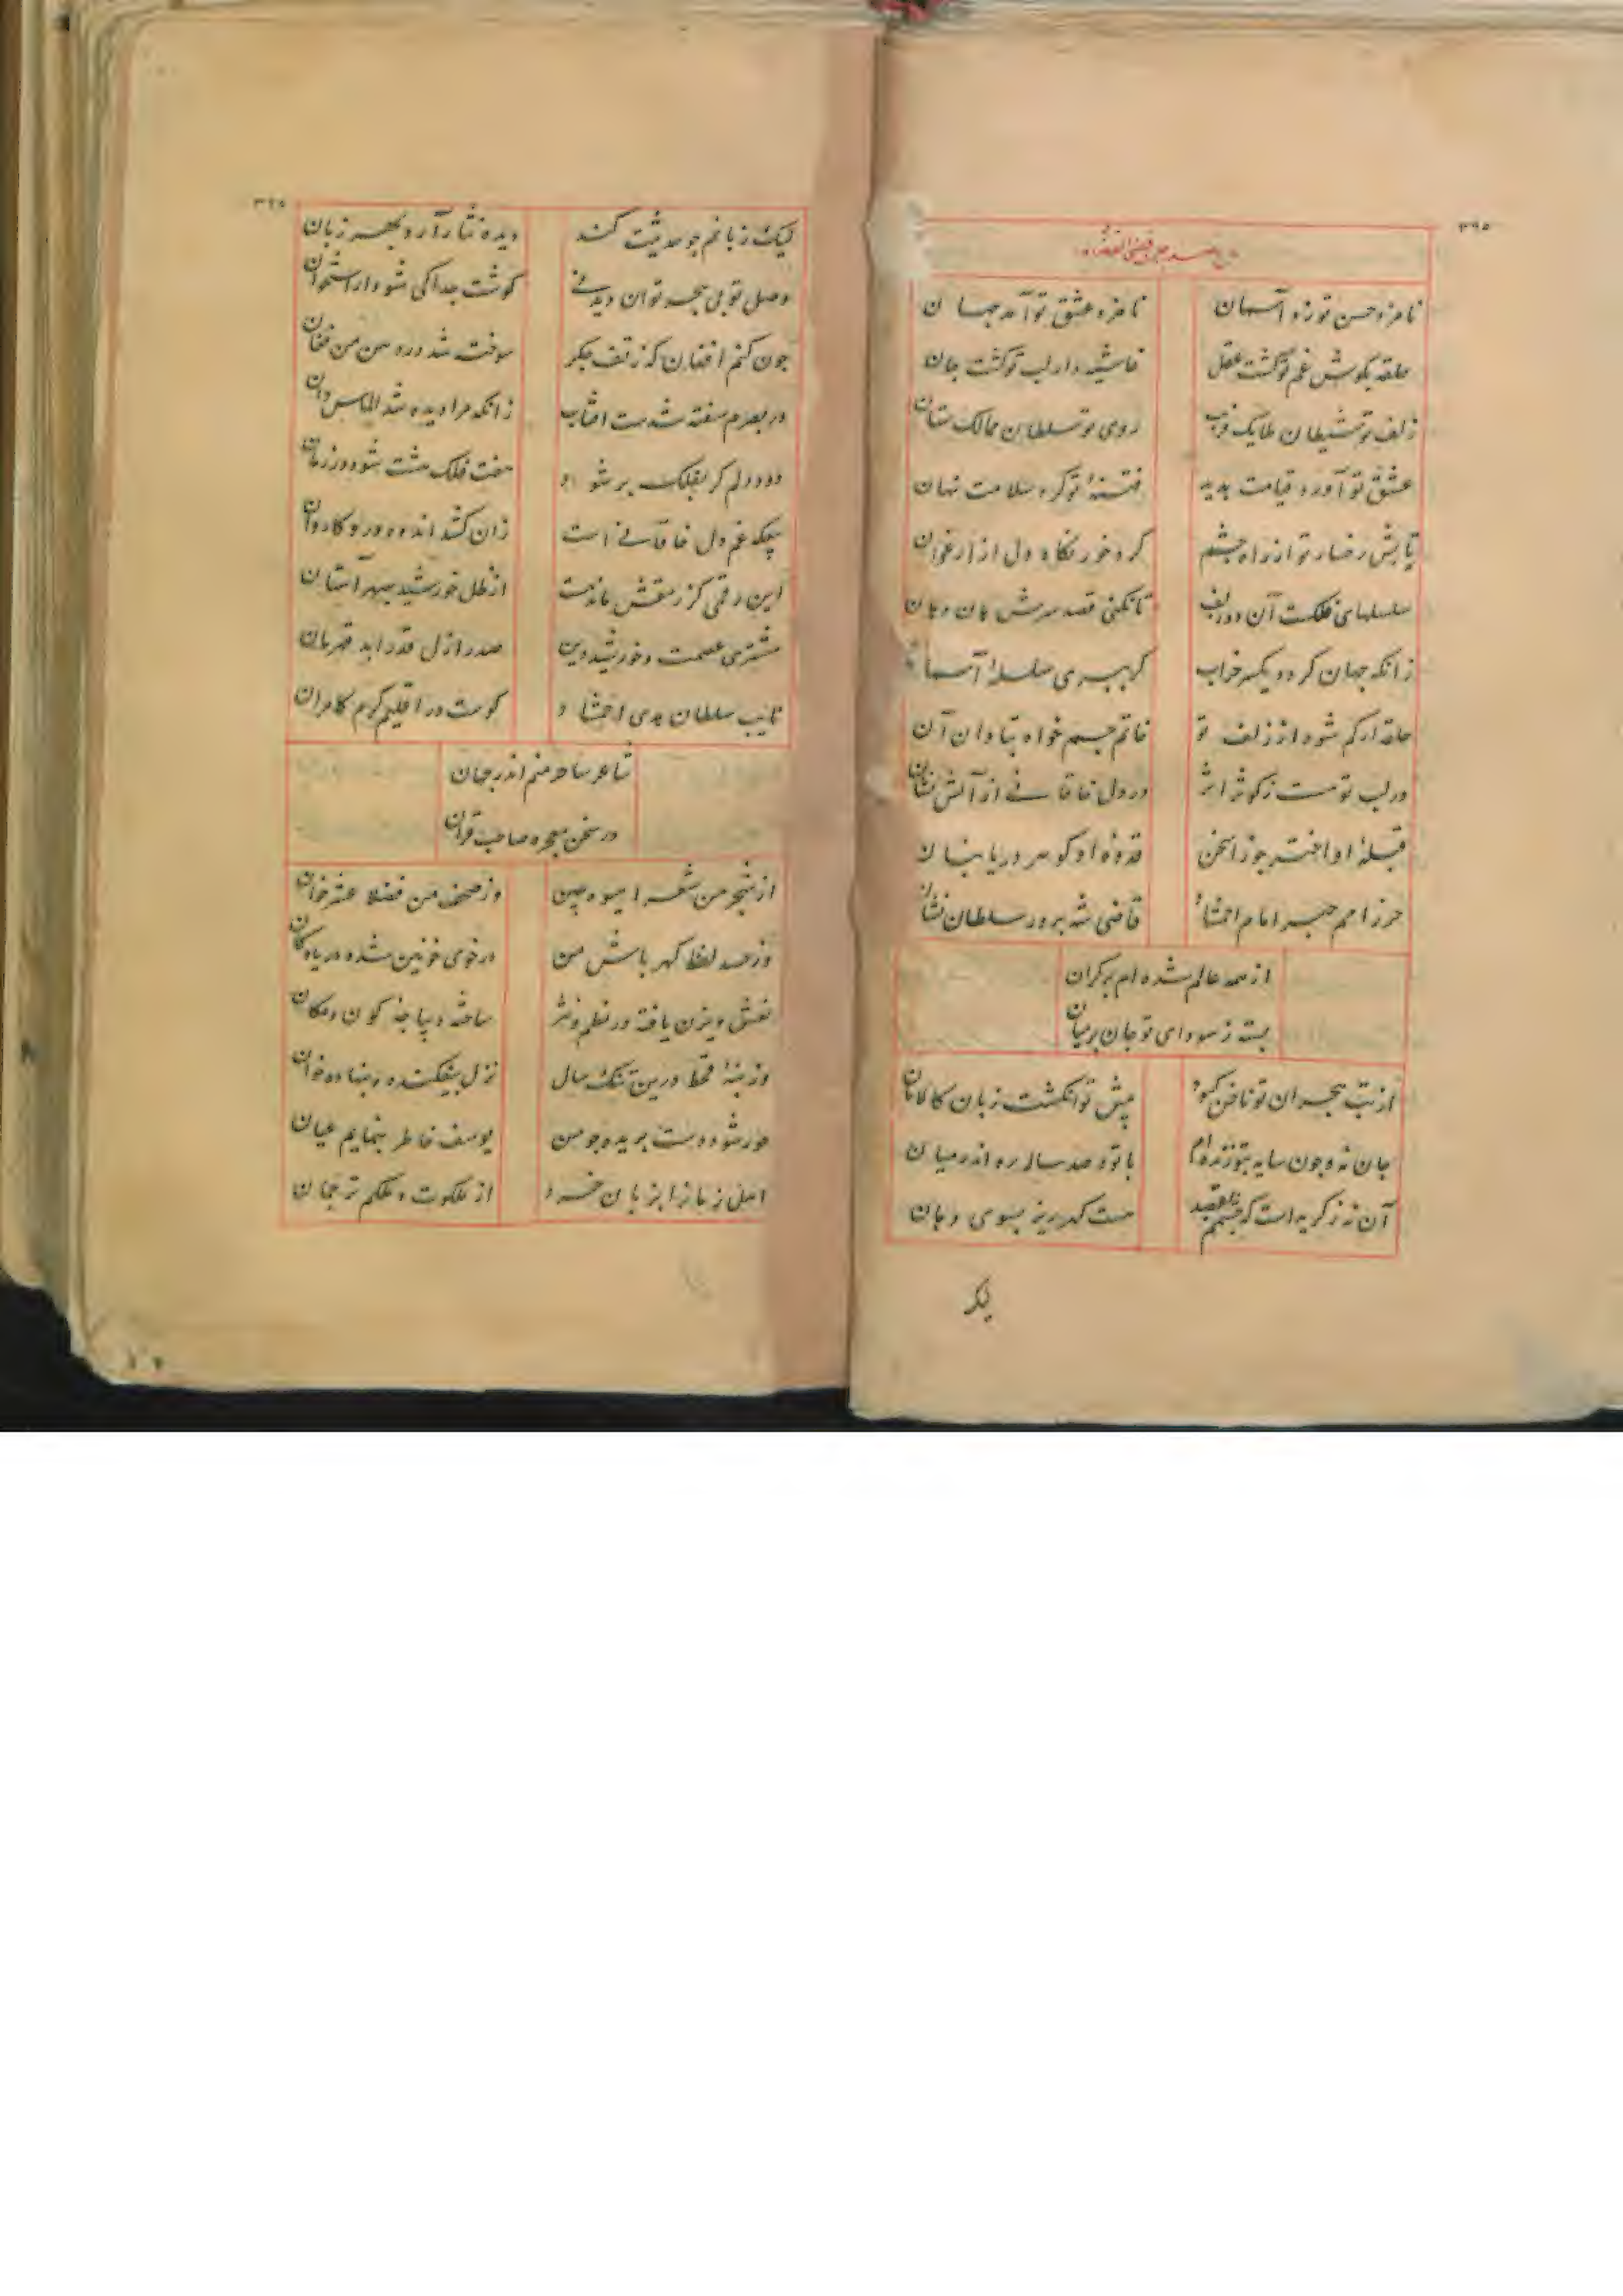 ۳۹۵
نامزد حسن تو زد آسمان نامزد عشق تو آمد جهان
حلقه بگوش غم تو گشت عقل غاشیه دار لب تو گشت جان
زلف تو شیطان ملایک فریب روی تو سلطان ممالک ستان
عشق تو آورد قیامت پدید فتنهٔ تو کرد سلامت نهان
تابش رخسار تو از راه چشم کرد خورنکاه دل از ارغوان
سلسلهای فلکست آن دو زلف تا نکنی قصد سرش هان و هان
زانکه جهان کردد یکسر خراب کر ببری سلسلهٔ آسمان
حلقه ار کم شود از زلف تو خاتم جم خواه بتاوان آن
در لب تو هست ز کوثر اثر در دل خاقانی از آتش نشان
قبلهٔ او اختر جوزا سخن قدوهٔ او کوهر دریا بنان
حرز امم حبر امام احتشام قاضی شه پرور سلطان نشان
از همه عالم شده ام بر کران
بسته ز سودای تو جان بر میان
از تب هجران تو ناخن کبود پیش تو انکشت زبان کالامان
جان نه و چون سایه بتو زنده ام با تو و صد ساله ره اندر میان
آن نه ز کریه است که چشمم بقصد هست کهر ریز بسوی دهان
لیک
۳۹۵
لیک زبانم چو حدیثت کند دیده نثار آرد بهر زبان
وصل تو بی هجر توان دید نی کوشت جدا کی شود از استخوان
چون کنم افغان که ز تف جکر سوخته شد در دهن من فغان
در بصرم سفته شدست آفتاب زانکه مرا دیده شد الماس دان
دود دلم کر بفلک بر شود هفت فلک هشت شود در زمان
چکه غم دل خاقانی است زان کشد اندوه درو کاروان
این رقمی کز رمقش ماندست از ظل خورشید سپهر آستان
مشتری عصمت و خورشید دین صدر ازل قدر ابد قهرمان
نایب سلطان هدی احتشاد کوست در اقلیم کرم کامران
شاعر ساحر منم اندر جهان
در سخن معجزه صاحب قران
از شجر من شعرا میوه چین وز صحف من فضلا عشر خوان
وز حسد لفظ کهر باش من در خوی خونین شده دریا و کان
نعش و پرن یافته در نظم و نثر ساخته دیباجه کون و مکان
وز بنهٔ قحط درین تنک سال نزل بیفکنده و بنهاده خوان
حور شود دست بریده چو من یوسف خاطر بنمایم عیان
اهل زمانرا بزبان خرد از ملکوت و ملکم ترجمان